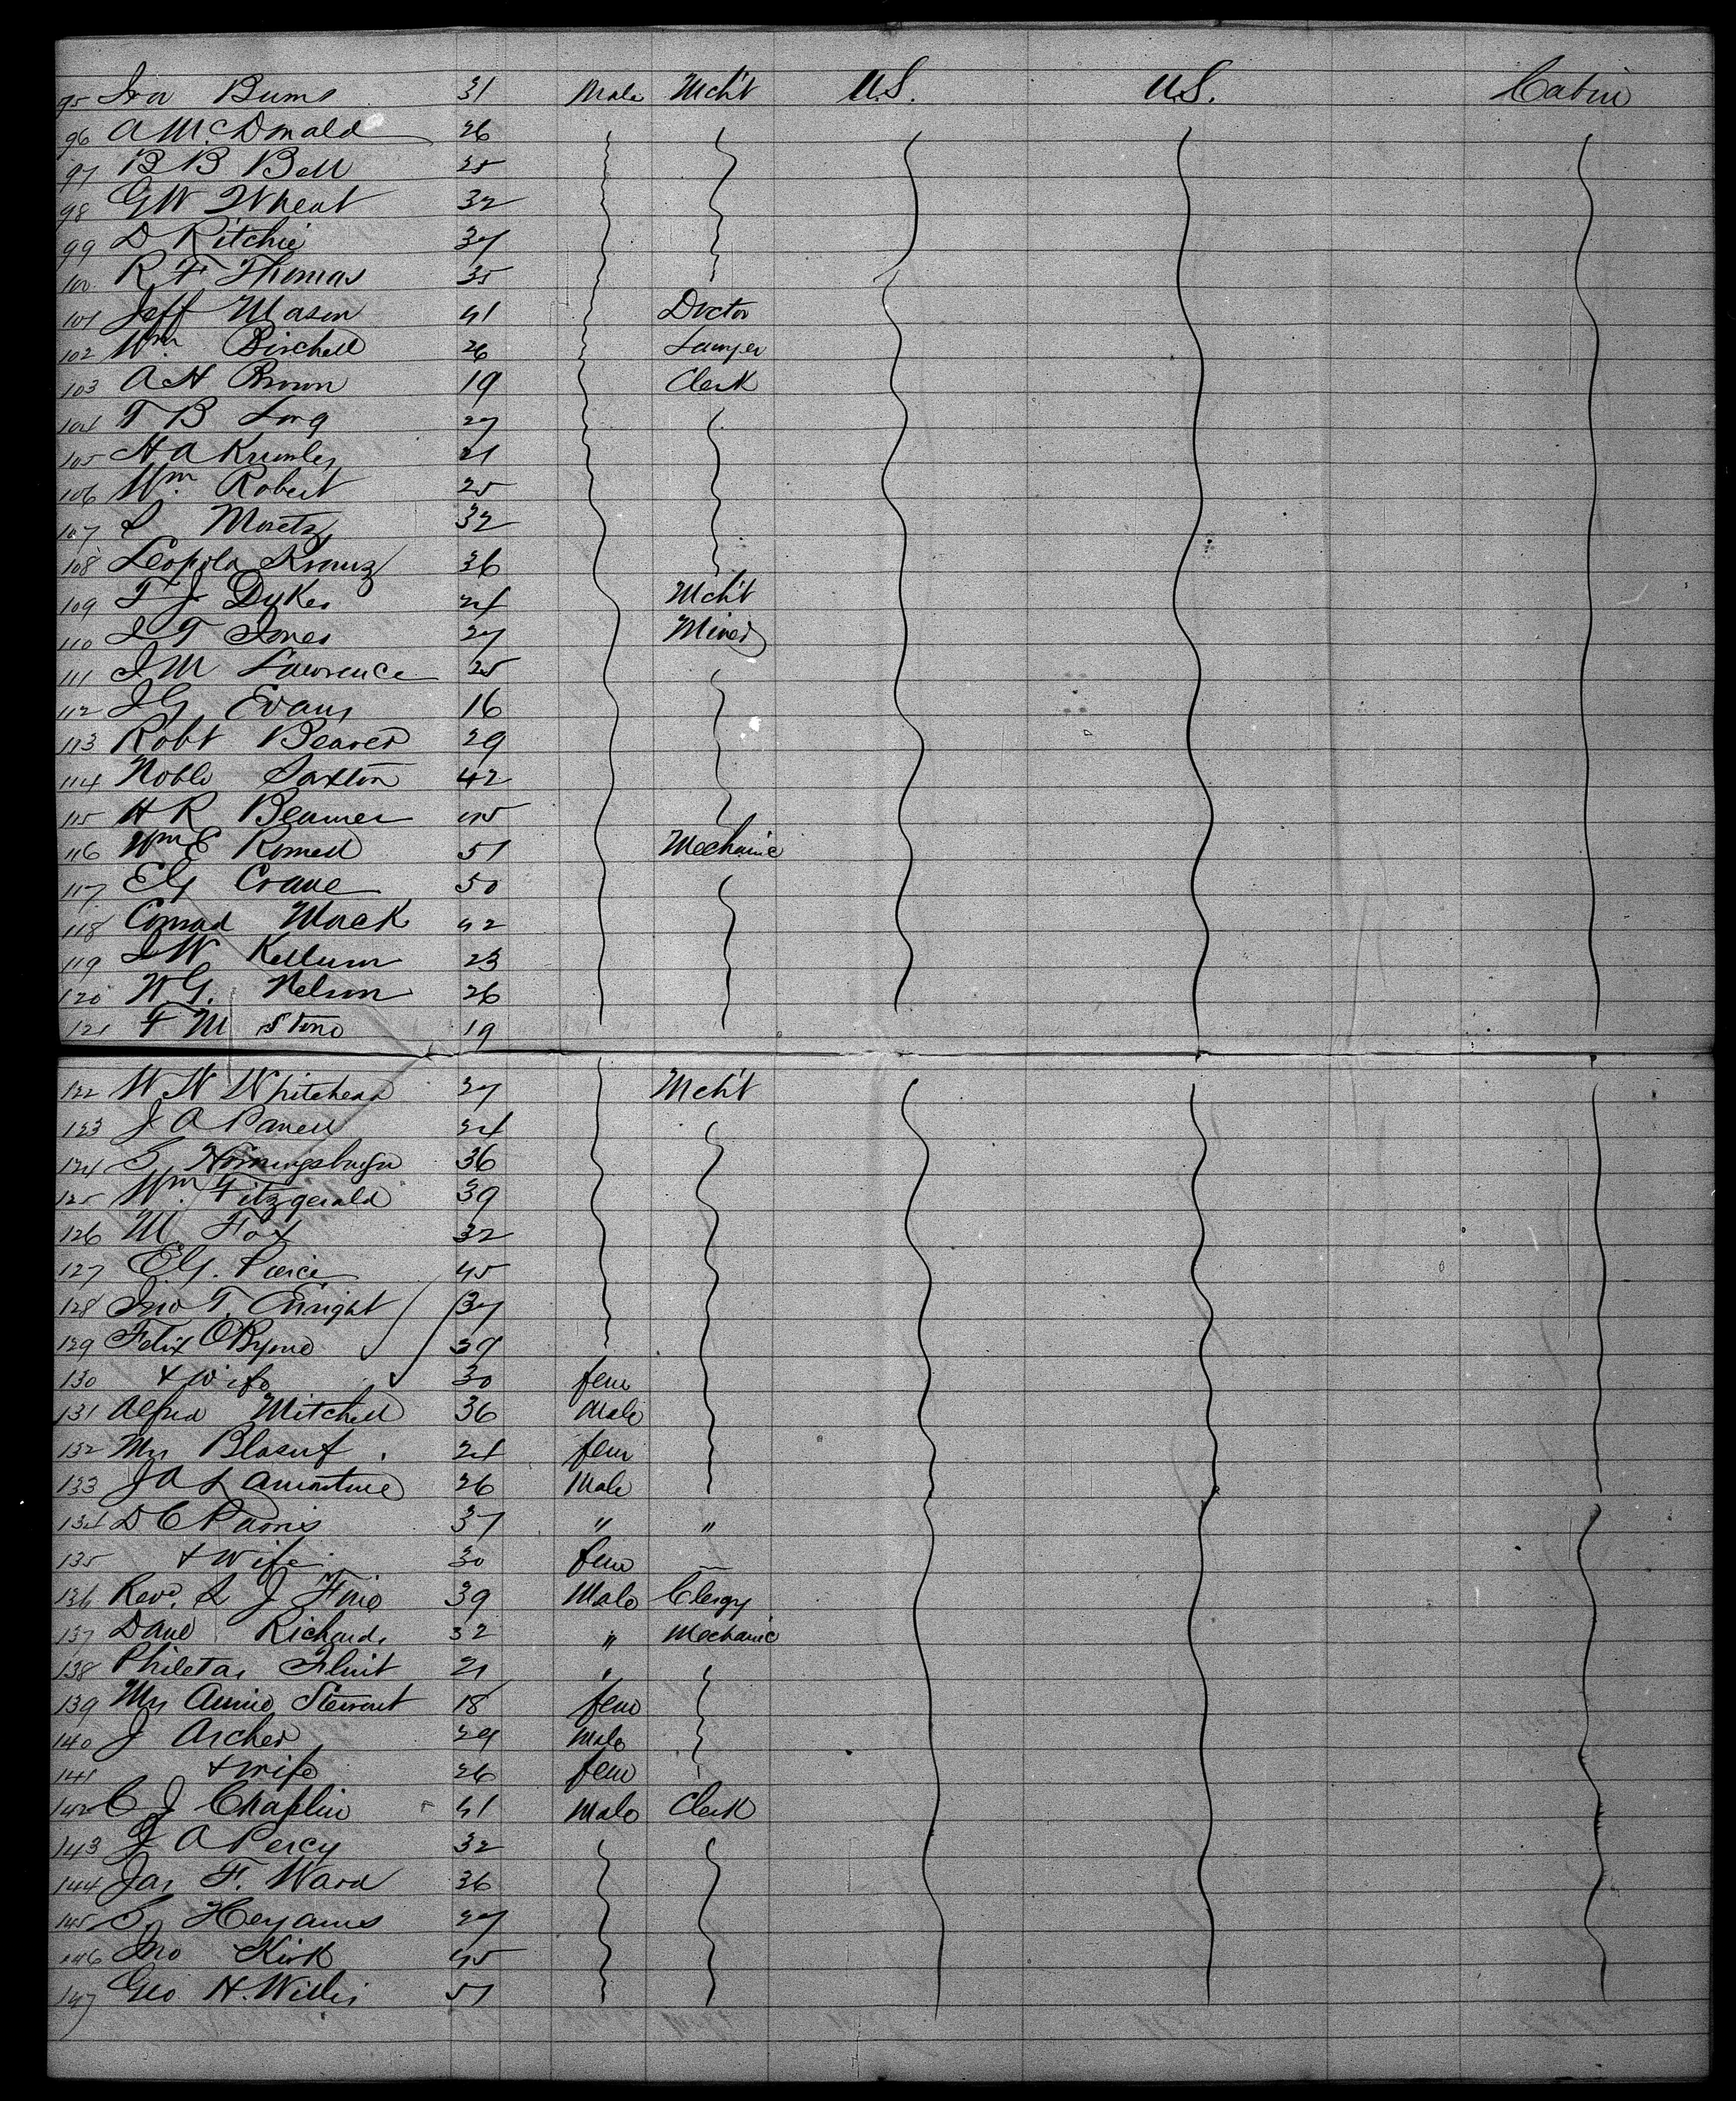 95 Ira Burns 31 Male Mcht U.S. U.S. Cabin
96 A McDonald 26
97 B B Bell 25
98 G W Wheat 32
99 D Ritchie 37
100 R F Thomas 35
101 Jeff Mason 41 Doctor
102 Wm Birchell 26 Lawyer
103 A H Brown 19 Clerk
104 T B Long 27
105 H A Krumley 21
106 Wm Robert 25
107 S Moretz 32
108 Leopold Kranz 36
109 T J Dykes 24 Mcht
110 I T Jones 27 Miner
111 J M Lawrence 25
112 J G Evans 16
113 Robt Beaver 29
114 Noble Saxton 42
115 H R Beamer 45
116 Wm E Romell 51 Mechanic
117 E G Crane 50
118 Conrad Mack 42
119 I W Kellum 23
120 W G. Nelson 26
121 F M Stone 19
122 W W Whitehead 27 Mcht
123 J A Panell 24
124 S 36
125 Wm Fitzgerald 39
126 M Fox 32
127 E G. Pierce 45
128 Jno T. Enright 37
129 Felix O'Byrne 39
130 & wife 30 fem
131 Alfred Mitchell 36 Male
132 Mrs 24 fem
133 J A 26 Male
134 D C Parris 37 " "
135 & wife 30 fem —
136 Revd. S J Finé 39 Male Clergy
137 Dave Richards 32 " Mechanic
138 Philetas Flint 21 "
139 Mrs Annie Stewart 18 fem
140 J Archer 29 Male
141 & wife 26 fem
142 C J Chaplin 41 Male Clerk
143 J A Percy 32
144 Jas F. Ward 36
145 S. Heyams 27
146 Jno Kirk 45
147 Geo H. Willis 51